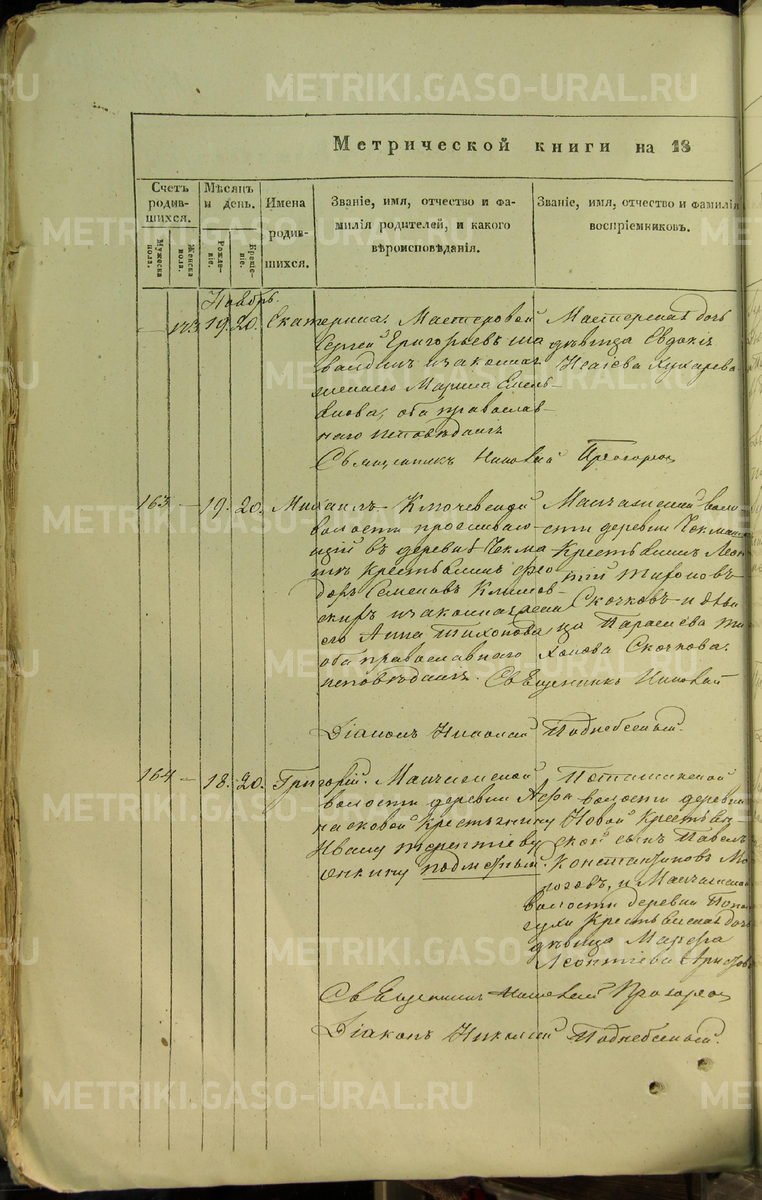 Метрической книги на 18
Счетъ родив-шихся.
Мужеска пола.
Женска пола.
Мѣсяцъ и день.
Рожде-ніе.
Креще-ніе.
Имена родив-шихся.
Званіе, имя, отчество и фа-
милія родителей, и какого
вѣроисповѣданія.
Званіе, имя, отчество и фамилія
воспріемниковъ.
Ноябрь.
19. 20. Екатерина.
Мастеровой
Сергей Григорьевъ
и законная
жена его Марина Емель
янова, оба православ-
наго исповѣданія
Мастерская дочь
дѣвица Евдокія
Священникъ Николай
163 — 19. 20. Михаилъ
Ключевской
волости проживаю-
щій въ деревнѣ Чекма
шъ Крестьянинъ Фео
доръ Семеновъ Климов-
скихъ и законная жена
его Анна Тихонова
оба православнаго
исповѣданія.
Манчажской воло-
сти деревни Чекмашъ
Крестьянинъ Леон
тій Тихоновъ
Скочковъ и дѣви
ца Параскева Ти
хонова Скочкова.
Священникъ Николай
Діаконъ Николай Поднебесный.
164 — 18. 20. Григорій.
Манчажской
волости деревни
Крестьянину
Ивану Терентіеву
подметный.
Поташинской
волости деревни
Новой Крестьян-
ской сынъ Павелъ
Константиновъ
и Манчажской
волости деревни
Крестьянская дочь
дѣвица Марфа
Леонтіева
Священникъ Николай
Діаконъ Николай Поднебесный.
METRIKI.GASO-URAL.RU